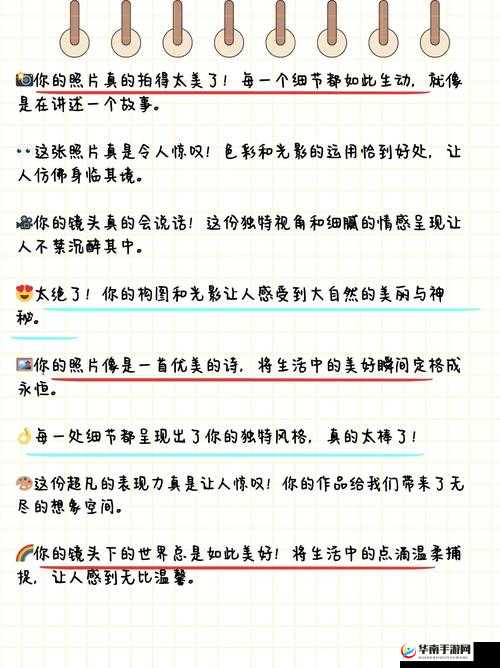 📸你的照片真的拍得太美了！每一个细节都如此生动，就像
是在讲述一个故事。
👀这张照片真是令人惊叹！色彩和光影的运用恰到好处，让
人仿佛身临其境。
🎥你的镜头真的会说话！这份独特视角和细腻的情感呈现让
人不禁沉醉其中。
😍太绝了！你的构图和光影让人感受到大自然的美丽与神
秘。
🖼️你的照片像是一首优美的诗，将生活中的美好瞬间定格成
永恒。
👌每一处细节都呈现出了你的独特风格，真的太棒了！
🎨这份超凡的表现力真是让人惊叹！你的作品给我们带来了无
尽的想象空间。
🌈你的镜头下的世界总是如此美好！将生活中的点滴温柔捕
捉，让人感到无比温馨。
华南手游网